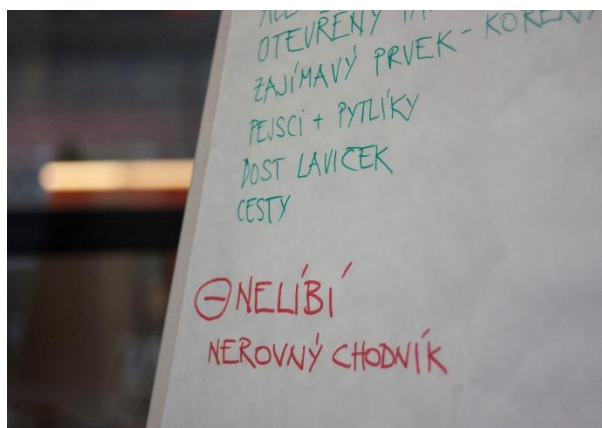 OTEVŘENÝ
ZAJÍMAVÝ PRVEK - KOŘENY
PEJSCI + PYTLÍKY
DOST LAVIČEK
CESTY
⊖ NELÍBÍ
NEROVNÝ CHODNÍK